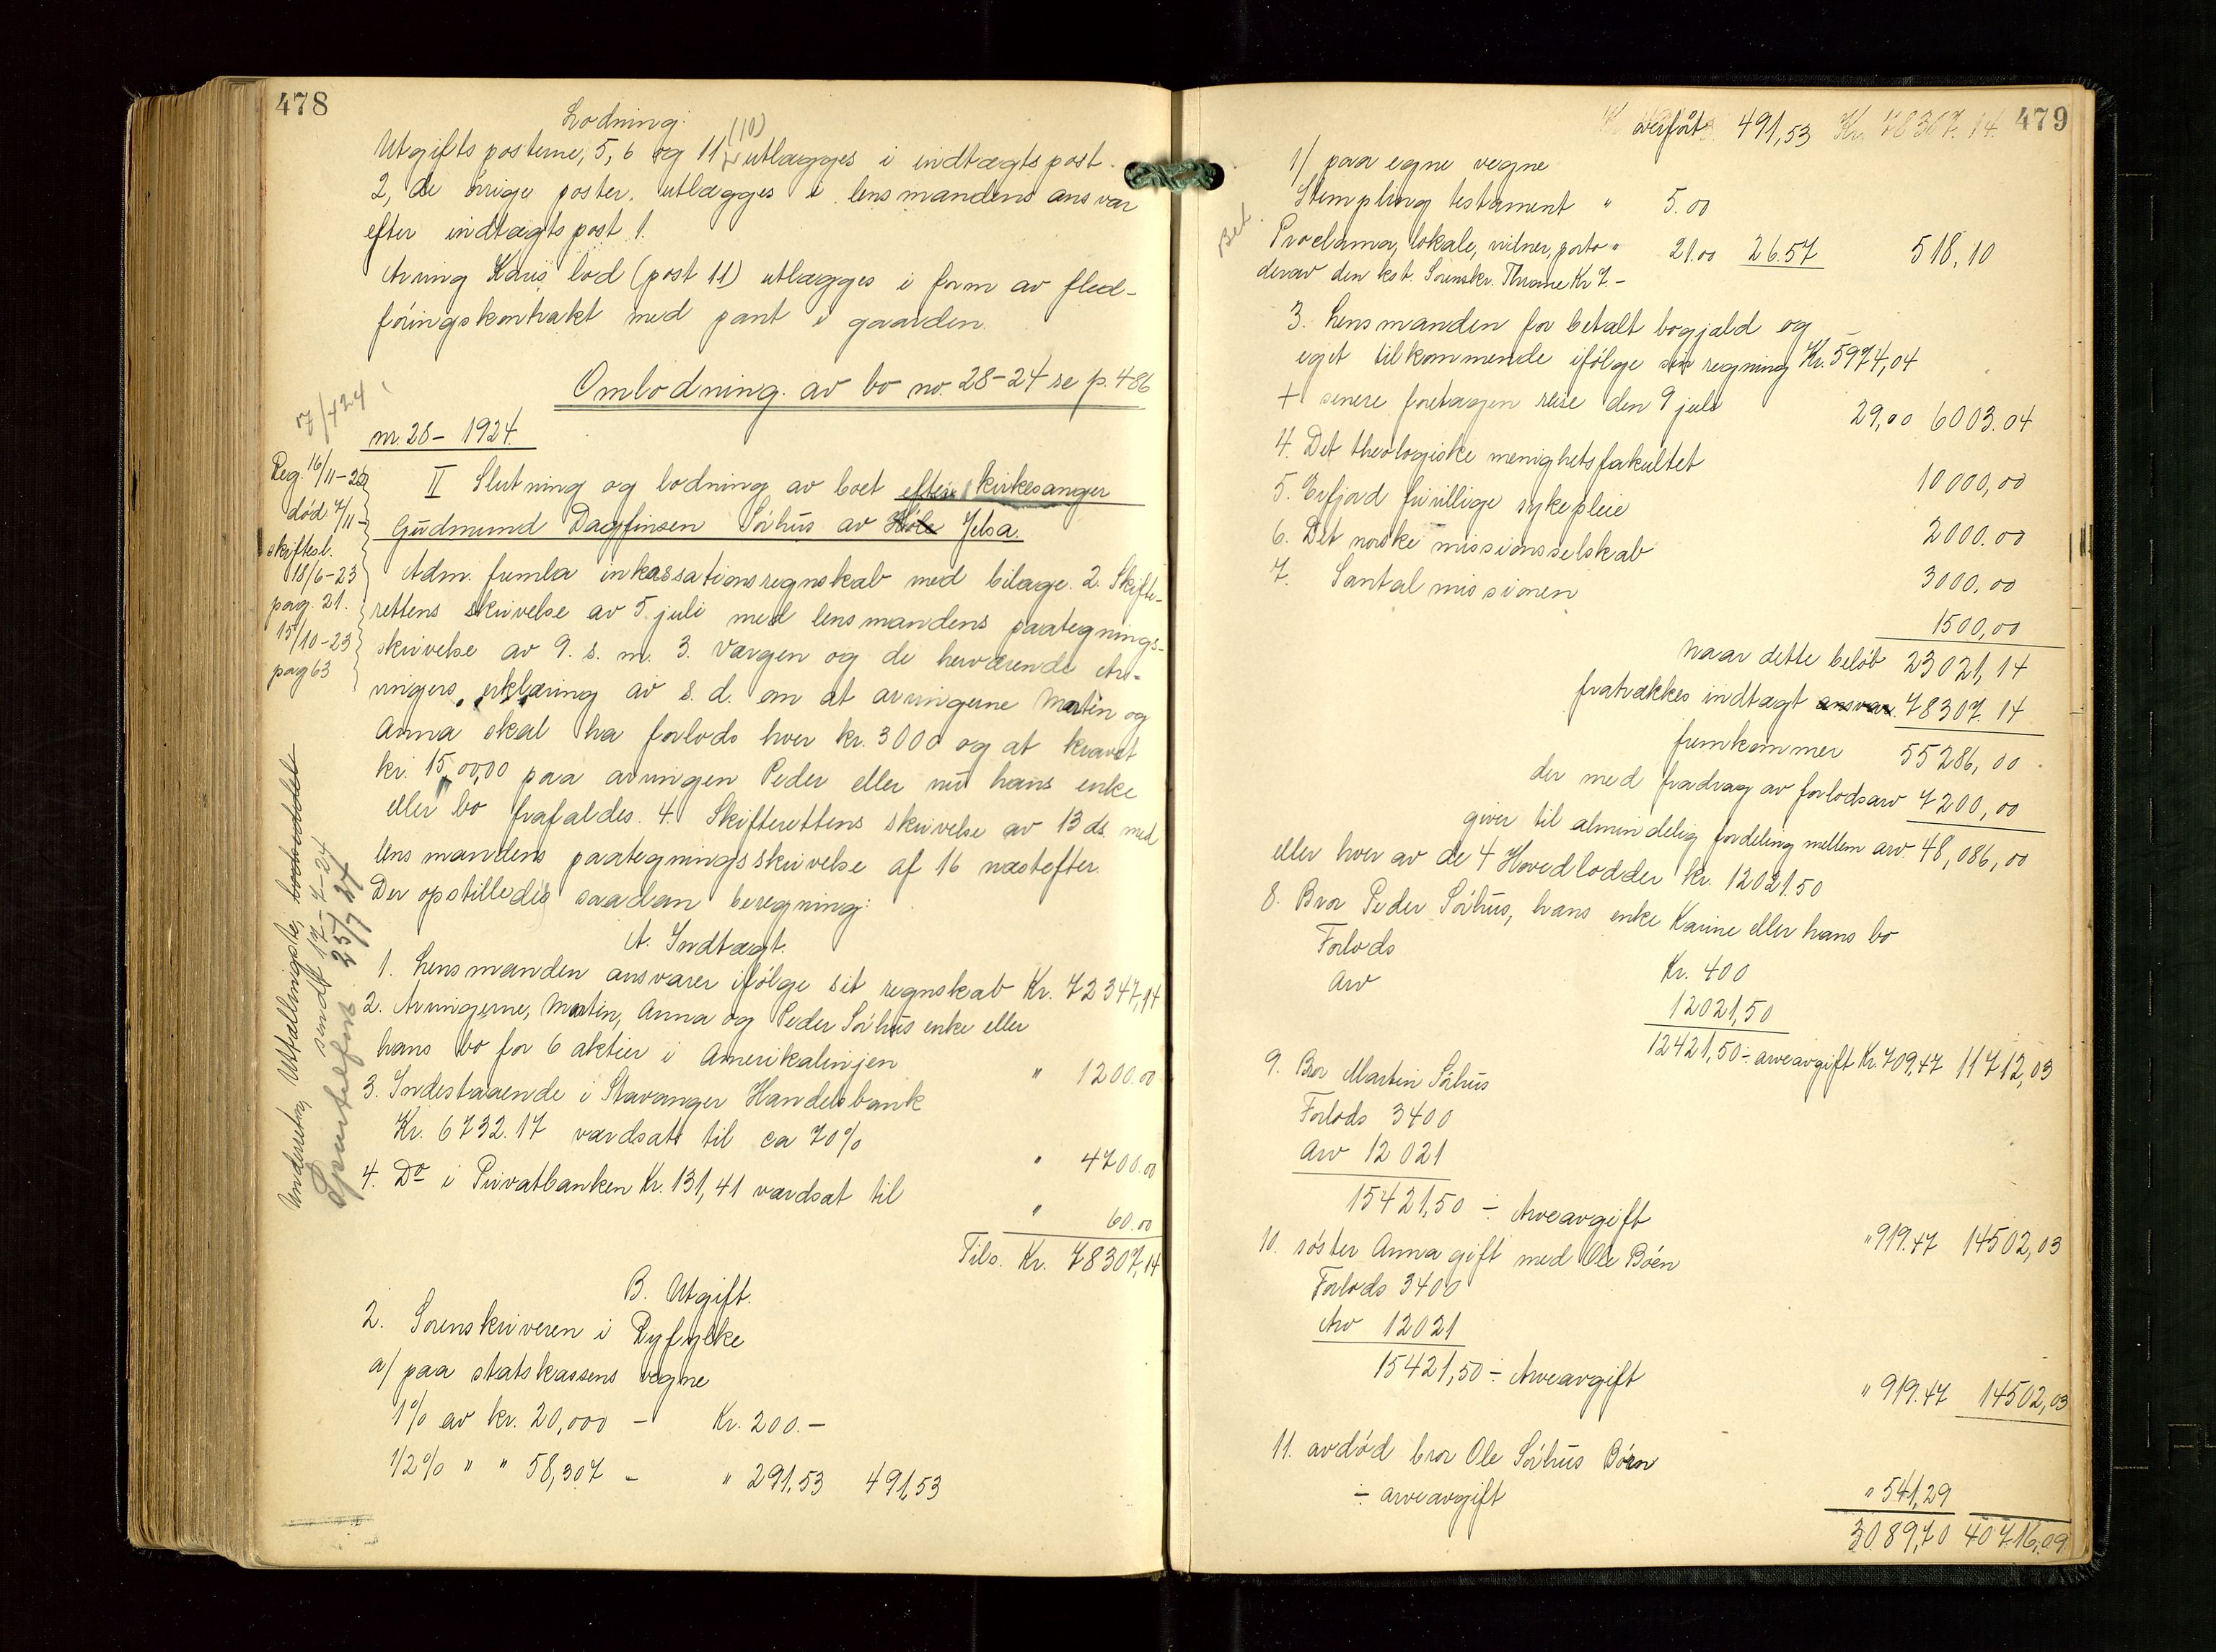 478
Lodning:
Utgiftsposterne, 5, 6 og 11 (10) utlægges i indtægtspost
2, de örige poster utlægges i lensmandens ansvar
efter indtægtspost 1.
Arving Karis lod (post 11) utlægges i form av flød-
föringskontrakt med pant i gaarden.
Omlodning av bo no. 28-24 se p. 486
nr. 28 - 1924.
Reg. 16/11-22
död 7/11-
skiftesl.
18/6-23
pag. 21.
15/10-23
pag 63
II Slutning og lodning av boet efter kirkesanger
Gudmund Dagfinsen Sörhus av Höle Jelsa.
Adm. fremla inkassationsregnskab med bilage. 2. Skifte-
rettens skrivelse av 5 juli med lensmandens paategnings-
skrivelse av 9. s. m. 3. Værgen og de herværende Ar-
vingers erklæring av s. d. om at arvingerne Martin og
Anna skal ha forlods hver kr. 3000 og at kravet
kr. 1500,00 paa arvingen Peder eller nu hans enke
eller bo frafaldes. 4. Skifterettens skrivelse av 13 ds med
lensmandens paategningsskrivelse af 16 næstefter.
Der opstilledes saadan beregning:
A. Indtægt.
1. Lensmanden ansvarer ifölge sit regnskab Kr. 72347,14
2. Arvingerne, Martin, Anna og Peder Sörhus enke eller
hans bo for 6 aktier i Amerikalinjen " 1200.00
3. Indestaaende i Stavanger Handelsbank
Kr. 6732.17 værdsat til ca 70% " 4700.00
4. Do i Privatbanken Kr. 131,41 værdsat til " 60.00
Tils. Kr. 78307,14
B. Utgift.
2. Sorenskriveren i Ryfylke
a/ paa statskassens vegne
1% av kr. 20,000 - Kr. 200.-
1/2% " " 58,307 - " 291,53 491,53
Underretning, Utfallingste, lodseddel
sendt 17-7-24
25/7 24
479
overfört 491,53 Kr. 78307.14
1/ paa egne vegne
Stempling testament " 5.00
Bet.
Proclama, lokale, vidner, porto " 21.00 26.57 518,10
derav den kst. Sorenskr. Thrane Kr 7.-
3. Lensmanden for betalt bogjæld og
eget tilkommende ifölge sin regning Kr. 5974,04
+ senere foretagen reise den 9 juli 29,00 6003.04
4. Det theologiske menighetsfakultet 10000,00
5. Erfjord frivillige sykepleie 2000.00
6. Det norske missionsselskab 3000.00
7. Santalmissionen 1500,00
Naar dette belöb 23021,14
fratrækkes indtægt ansvar 78307.14
fremkommer 55286,00
der med fradrag av forlodsarv 7200,00
giver til almindelig fordeling mellem arv. 48,086,00
eller hver av de 4 Hovedlodder kr. 12021.50
8. Bror Peder Sörhus, hans enke Karine eller hans bo
Forlods Kr. 400
Arv 12021,50
12421,50 ÷ arveavgift Kr. 709.47 11712,03
9. Bror Martin Sörhus
Forlods 3400
Arv 12021
15421,50 ÷ Arveavgift " 919.47 14502,03
10. söster Anna gift med Ole Böen
Forlods 3400
Arv 12021
15421,50 ÷ Arveavgift " 919.47 14502,03
11. avdöd bror Ole Sörhus Börn
÷ arveavgift " 541,29
3089,70 40716,09